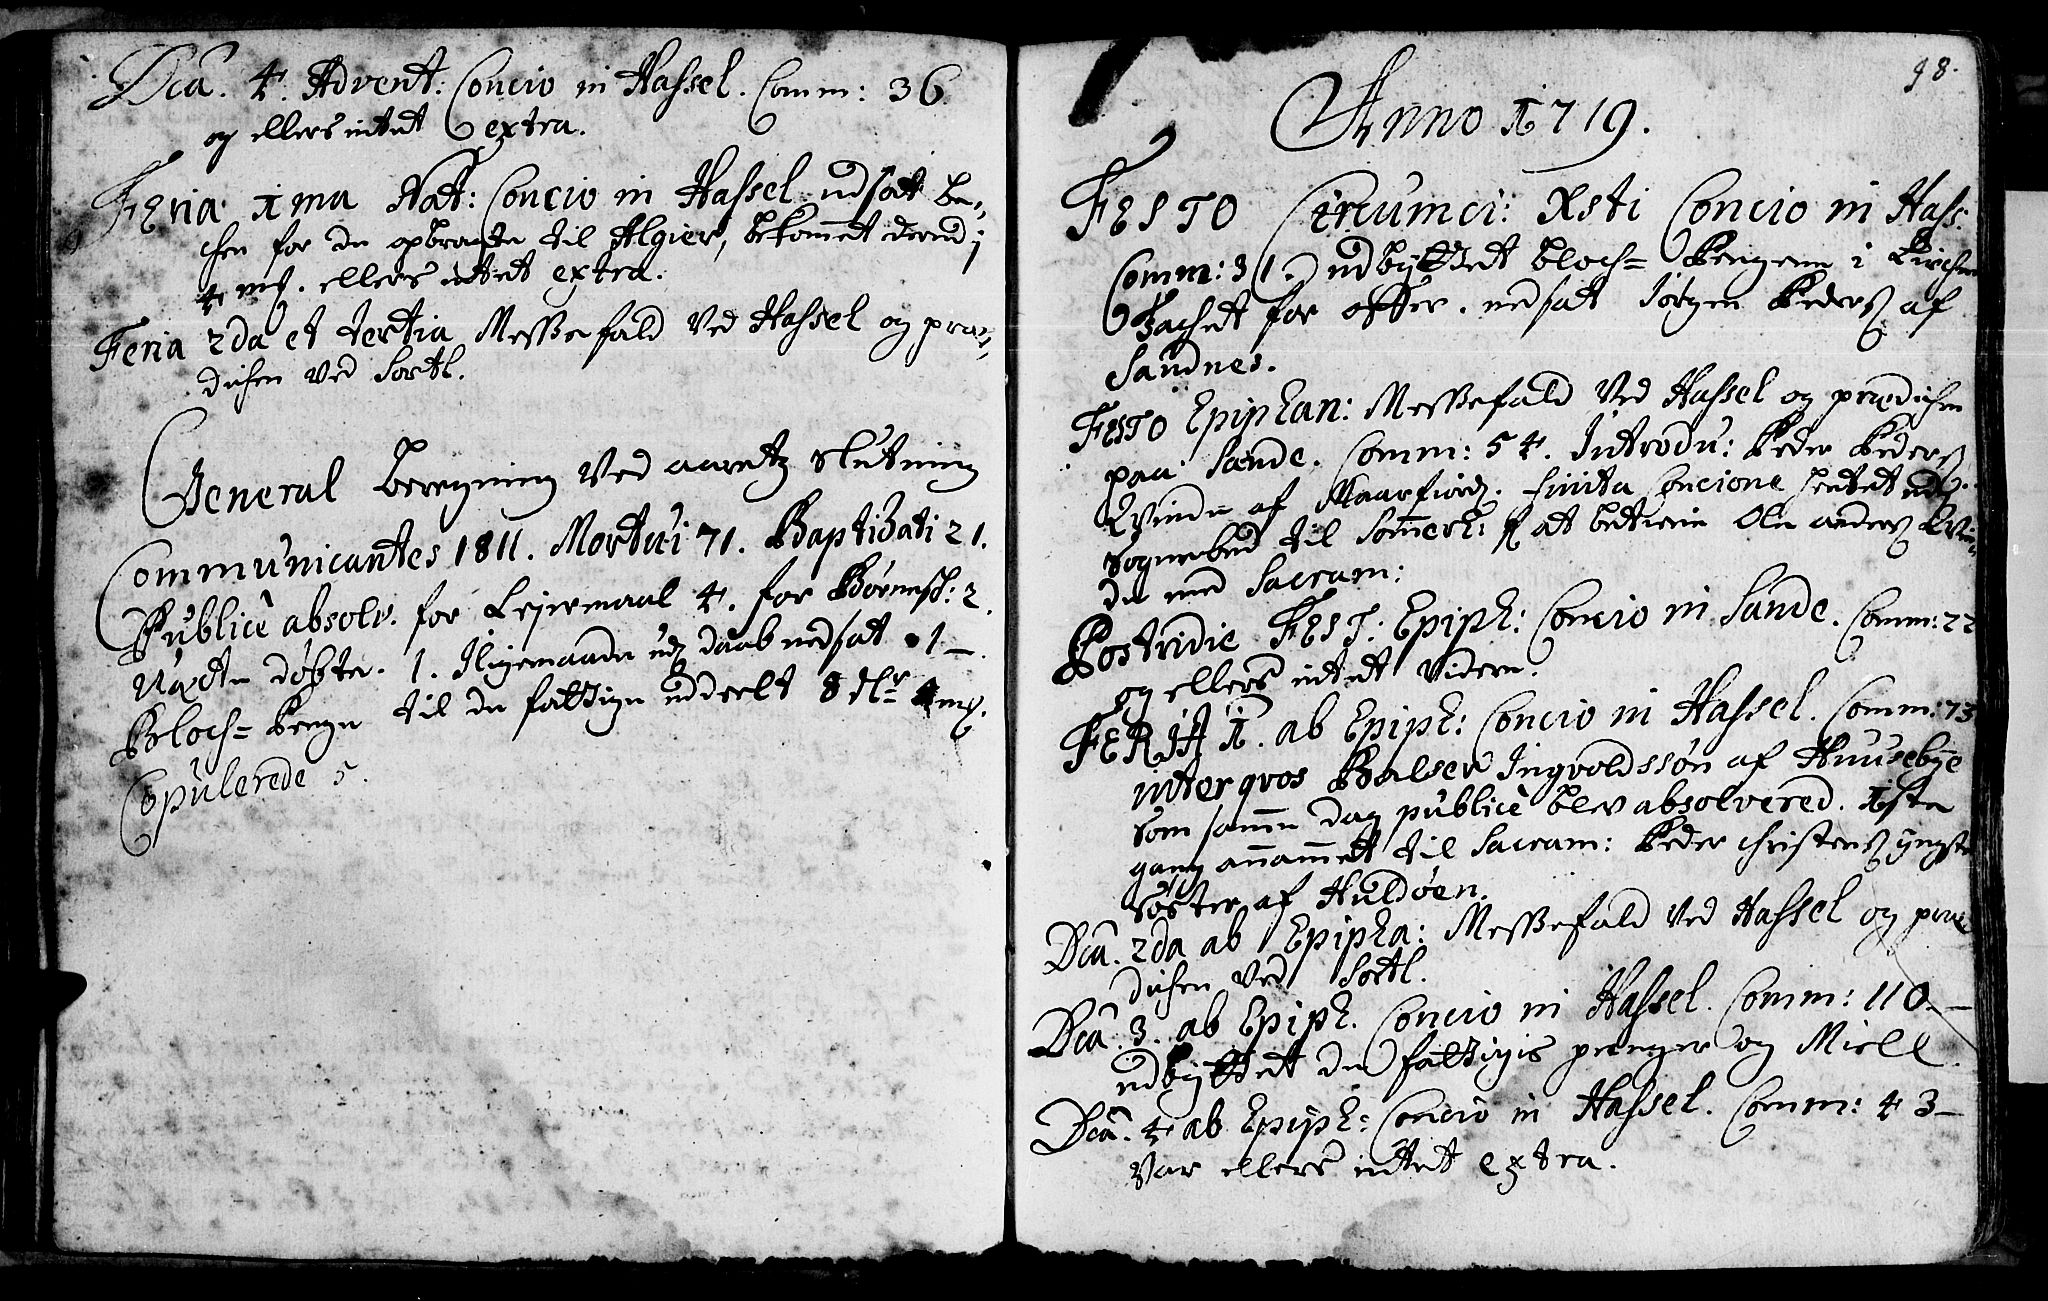 Dca. 4. Advent: Concio in Hassel. Comm: 36.
og ellers intet extra.
Feria 1ma Nat: Concio in Hassel udsatt be-
chen for de opbragte til Algier, bekommet derud i
4 mk. ellers intet extra.
Feria 2da et tertia Messefald ved Hassel og præ-
dichen ved Sortl.
General beregning ved aaretz slutning
Communicantes 1811. Mortui 71. Baptizati 21.
Publicè absolv. for Lejermaal 4. for Børnesb: 2.
døbte. 1. daab nedsat 1 -
Bloch= Penge til de fattige uddeelt 8 dlr 4 mk.
Copulerede 5.
98.
Anno 1719.
FESTO Circumci: Xsti Concio in Hass:
Comm: 31. udbyttet bloch= Pengene i Kirchen
Tachet for offer. nedsat Jørgen Peders af
Sandnes.
FESTO Epiphan: Messefald ved Hassel og prædichen
paa Sande. Comm: 54. Introdu: Peder Peders
Qvinde af Maarfiord. finita Concione hentet udj
Sognebud til Sommerh: at betiene Ole anders Qvin-
de med Sacram:
Postridie FEST: Epiph: Concio in Sande. Comm: 22
og ellers intet videre.
FERIA 1. ab Epiph: Concio in Hassel. Comm: 73
inter qvos Balser Ingvoldssøn af Huusebye
som samme dag publicè blev absolvered. 1ste
gang annammet til Sacram: Peder Christens yngste
Søster af Huldøen.
Dca. 2da ab Epipha: Messefald ved Hassel og præ-
dichen ved Sortl.
Dca. 3. ab Epiph. Concio in Hassel. Comm: 110 -
udbyttet de fattigis penger og Miell
Dca. 4 ab Epiph: Concio in Hassel. Comm: 43 -
var ellers intet extra.